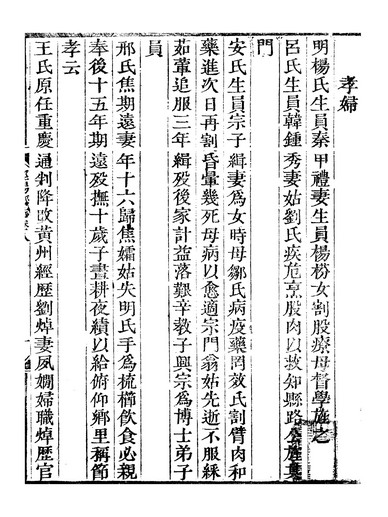 孝婦
明楊氏生員秦甲禮妻生員楊枌女割股療母督學旌之
呂氏生員韓鍾秀妻姑劉氏疾危烹股肉以救知縣路公旌其
門
安氏生員宗子緝妻為女時母鄒氏病疫藥罔效氏割臂肉和
藥進次日再割昏暈幾死母病以愈適宗門翁姑先逝不服綵
茹葷追服三年緝歿後家計益落艱辛教子興宗為博士弟子
員
邢氏焦期遠妻年十六歸焦孀姑失明氏手為梳櫛飲食必親
奉後十五年期遠歿撫十歲子晝耕夜績以給俯仰鄉里稱節
孝云
王氏原任重慶通判降改黃州經歷劉焯妻夙嫻婦職焯歷官